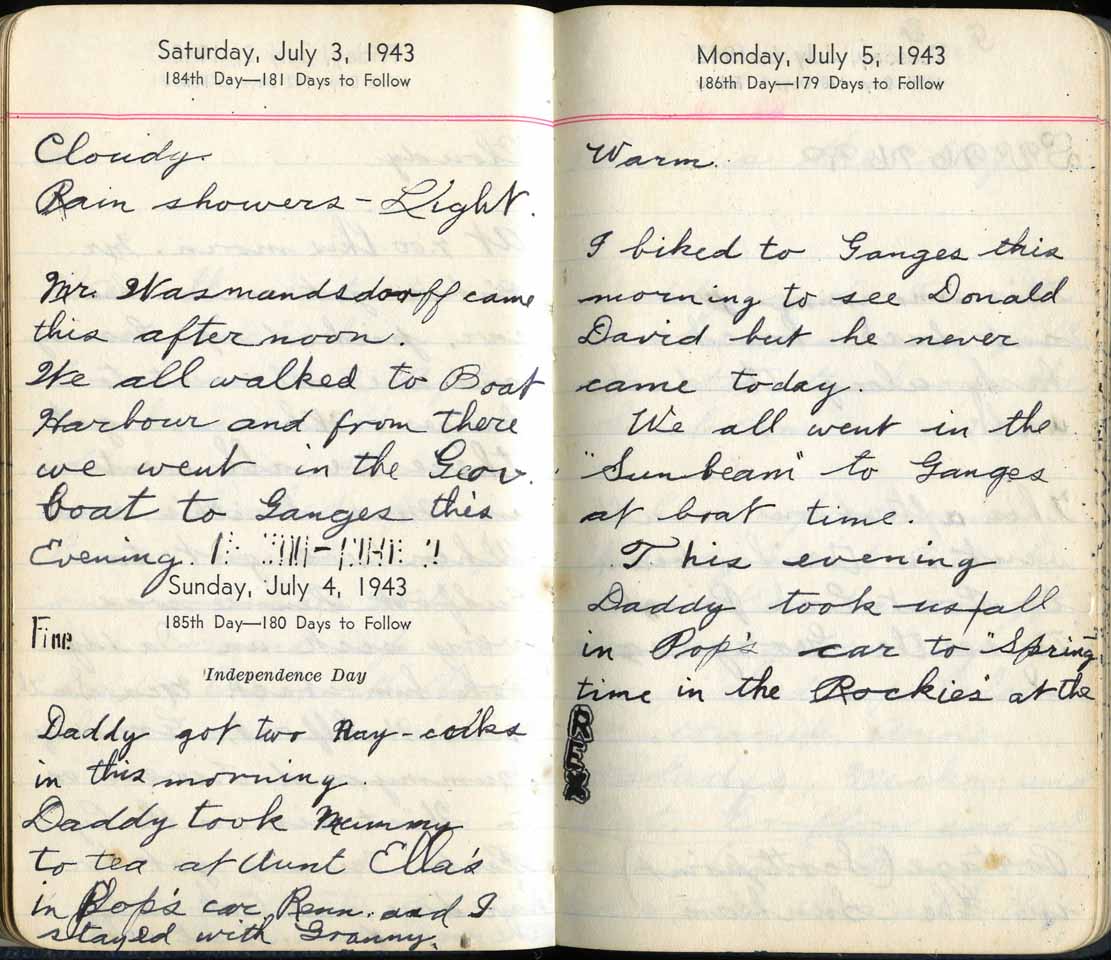 Saturday, July 3, 1943
184th Day—181 Days to Follow
Cloudy.
Rain showers - Light.
Mr. Wasmandsdooff came
this after noon.
We all walked to Boat
Harbour and from there
we went in the Gov.
boat to Ganges this
Evening.
Sunday, July 4, 1943
185th Day—180 Days to Follow
Fine
Independence Day
Daddy got two Hay-cocks
in this morning.
Daddy took Mummy
to tea at Aunt Ella's
in Pop's car, Penn. and I
stayed with Granny.
Monday, July 5, 1943
186th Day—179 Days to Follow
Warm.
I biked to Ganges this
morning to see Donald
David but he never
came today.
We all went in the
"Sunbeam" to Ganges
at boat time
This evening
Daddy took us all
in Pop's car to "Spring
time in the Rockies" at the
REX